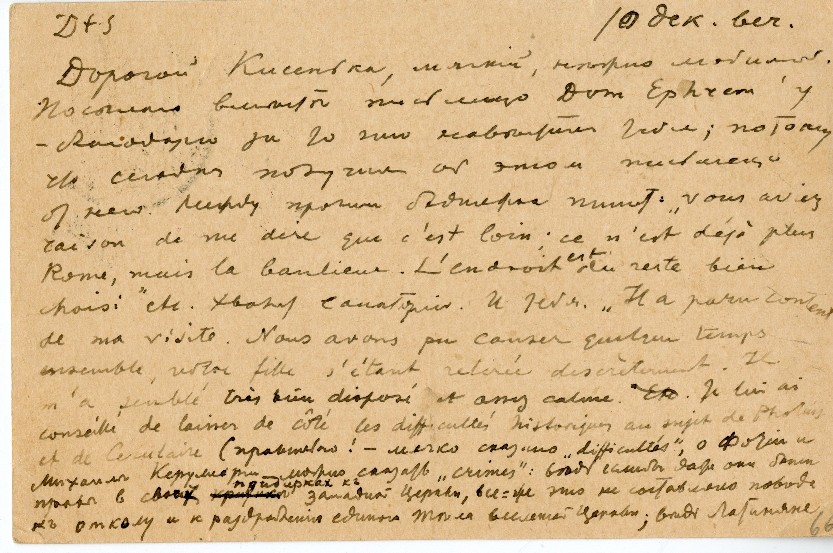 D+S 10 дек. веч.
Дорогой Кисенька, милый, нежно любимый.
Посылаю письмецо Dom Ephrem'у
– благодарю за то что тебя; потому
что сегодня получил от этом письмецо
от него. Между прочим пишет: „vous aviez
raison de me dire que c'est loin; ce n'est déjà plus
Rome, mais la banlieue. L'endroit est du reste bien
choisi" etc. Хвалит санаторию. И тебя. „Il a paru content
de ma visite. Nous avons pu causer quelque temps
ensemble, votre fille s'étant retirée discrètement. Il
m'a semblé très bien disposé et assez calme." Etc. Je lui ai
conseillé de laisser de côté les difficultés historiques au sujet de Photius
et de Cerulaire (правильно! – мягко сказано „difficultés", о Фотии и
Михаиле Керуларии можно сказать „crimes": ведь если бы даже они были
правы в своих придирках къ Западной Церкви, все-же это не составляло повода
къ отколу и к раздроблению единого тела вселенской Церкви; ведь Латиняне
66